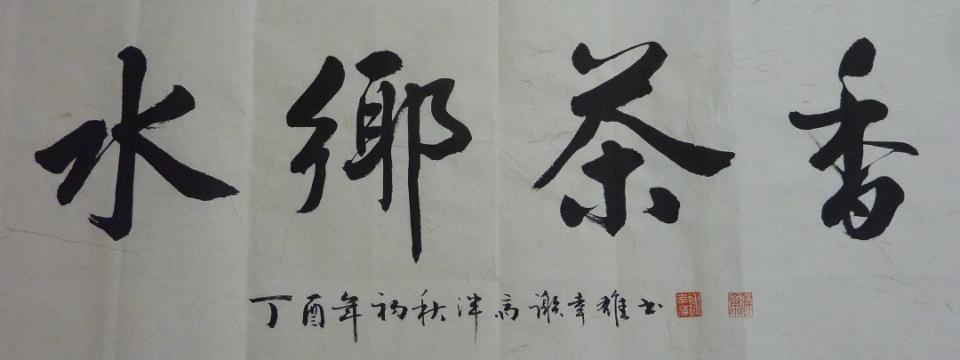 水鄉茶香
丁酉年初秋泮高謝幸雄书